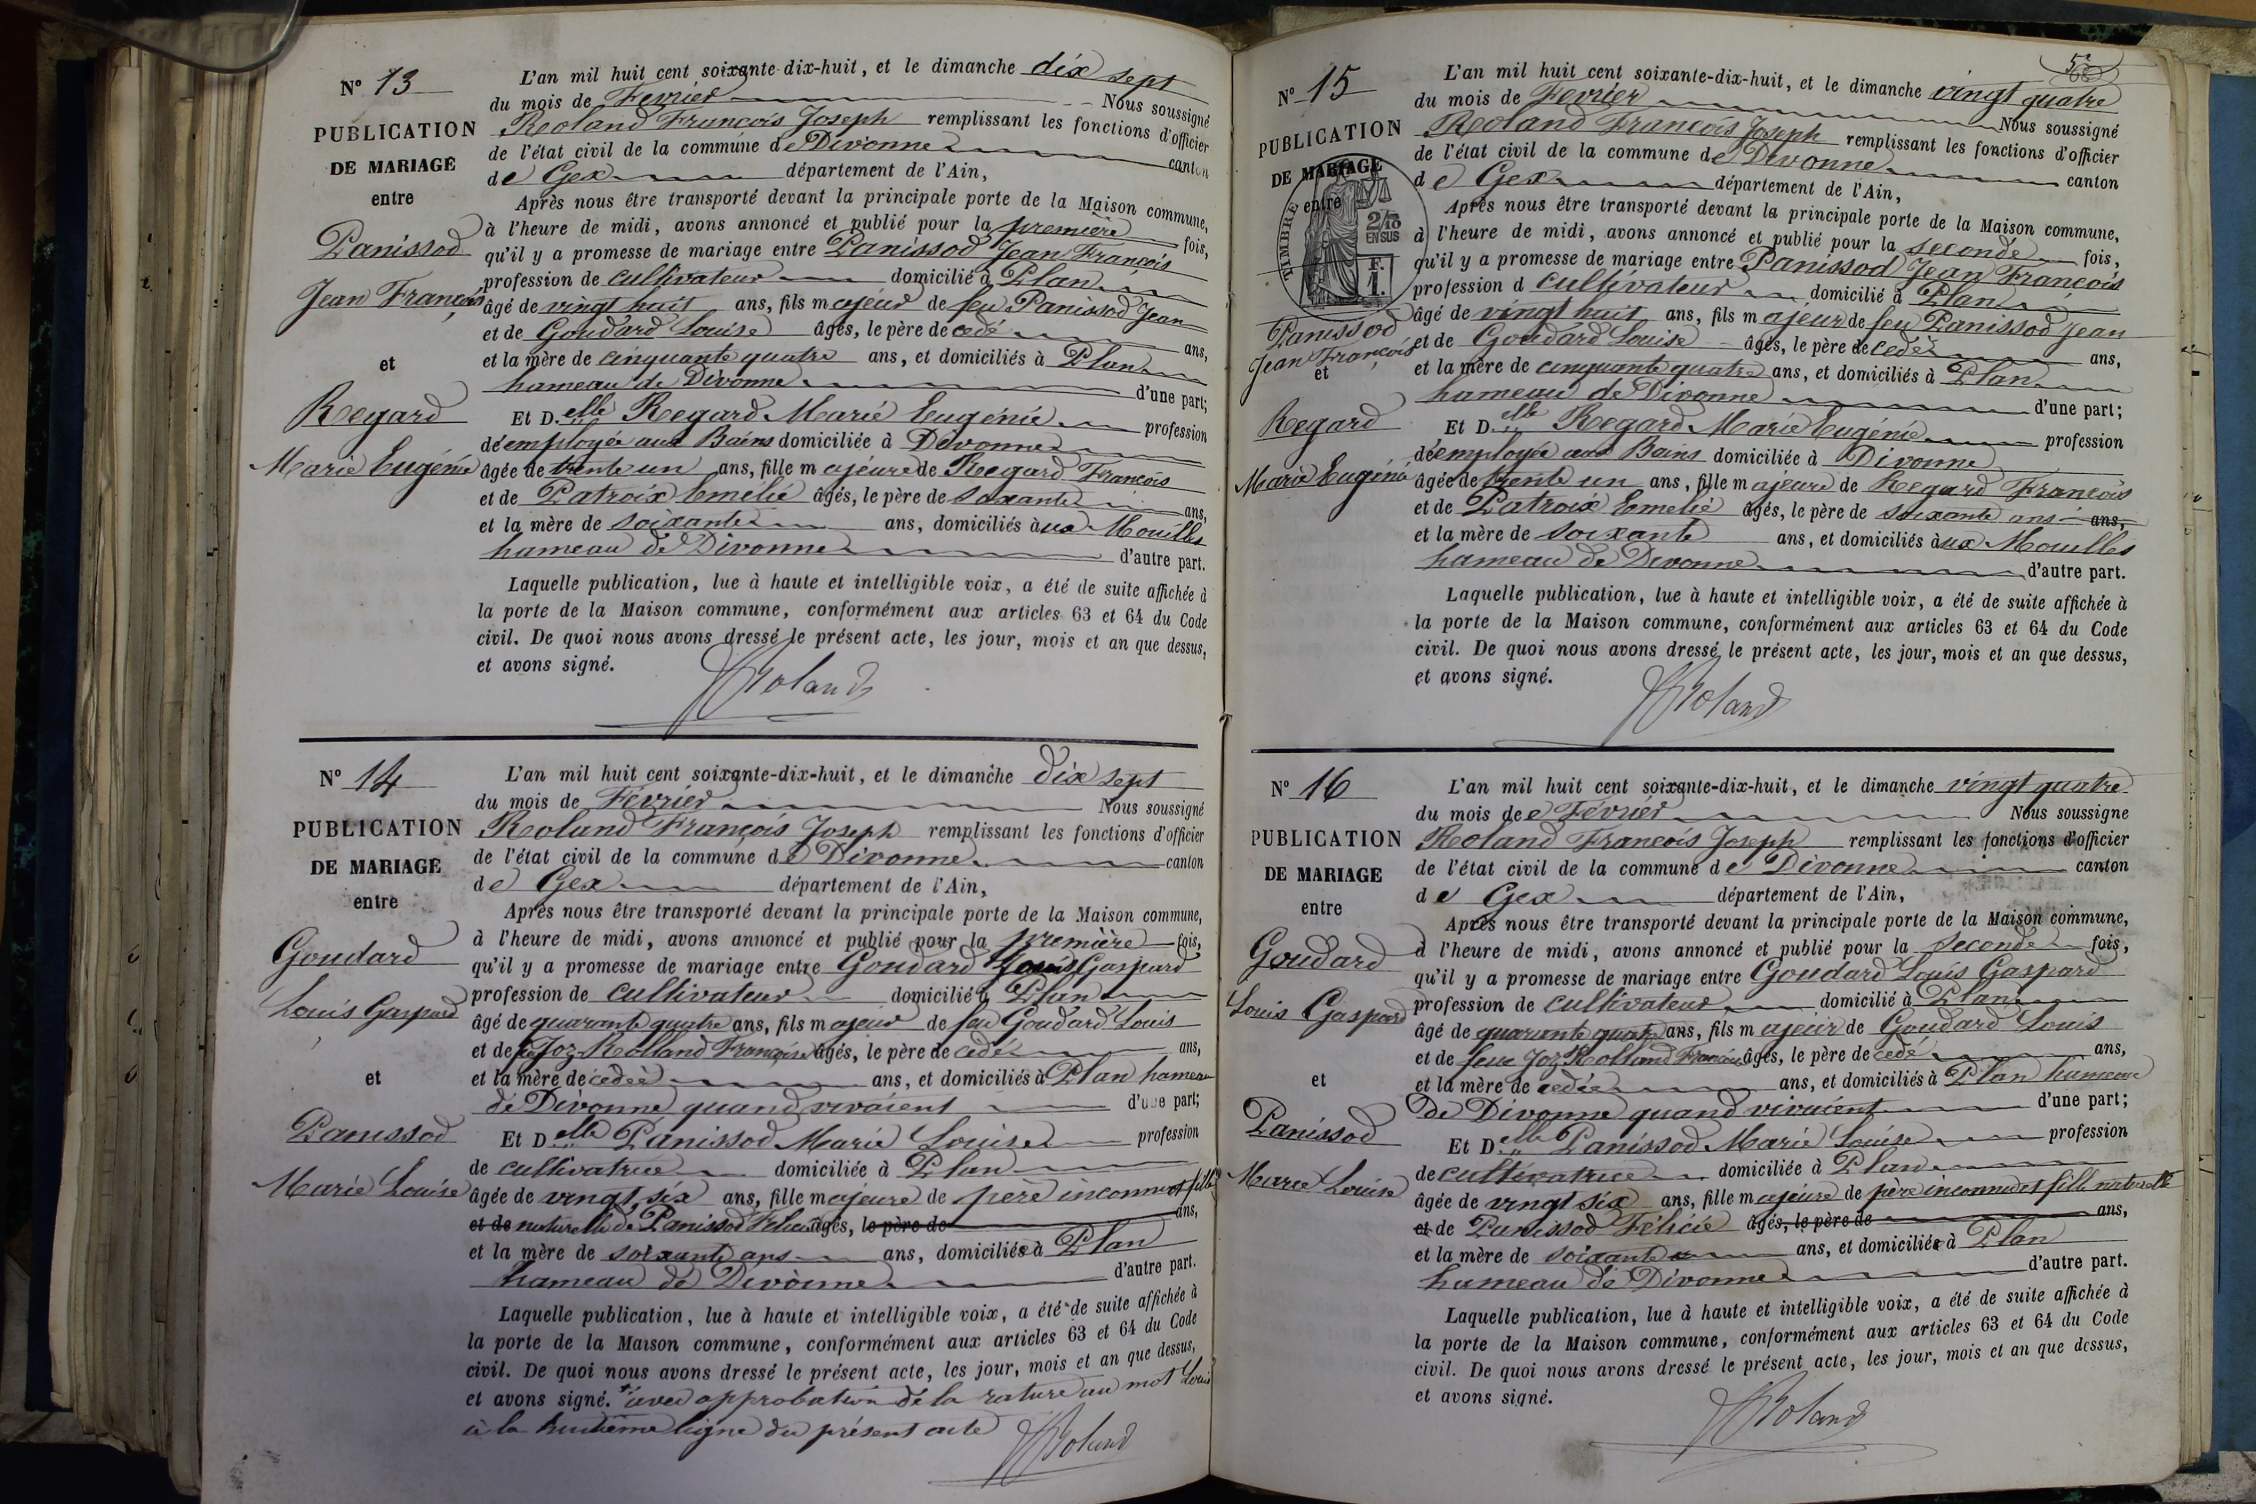 N° 13
PUBLICATION
DE MARIAGE
entre
Panissod
Jean François
et
Regard
Marie Eugénie
L'an mil huit cent soixante-dix-huit, et le dimanche dix sept
du mois de Fevrier Nous soussigné
Roland François Joseph remplissant les fonctions d'officier
de l'état civil de la commune de Divonne canton
de Gex département de l'Ain,
Après nous être transporté devant la principale porte de la Maison commune,
à l'heure de midi, avons annoncé et publié pour la première fois,
qu'il y a promesse de mariage entre Panissod Jean François
profession de cultivateur domicilié à Plan
âgé de vingt huit ans, fils majeur de feu Panissod Jean
et de Goudard Louise âgés, le père decedé ans,
et la mère de cinquante quatre ans, et domiciliés à Plan
hameau de Divonne d'une part;
Et D.elle Regard Marie Eugénie profession
d'employée aux Bains domiciliée à Divonne
âgée de trente un ans, fille majeure de Regard François
et de Patroix Emelie âgés, le père de soixante ans,
et la mère de soixante ans, domiciliés aux Mouilles
hameau de Divonne d'autre part.
Laquelle publication, lue à haute et intelligible voix, a été de suite affichée à
la porte de la Maison commune, conformément aux articles 63 et 64 du Code
civil. De quoi nous avons dressé le présent acte, les jour, mois et an que dessus,
et avons signé.
Roland
N° 14
PUBLICATION
DE MARIAGE
entre
Goudard
Louis Gaspard
et
Panissod
Marie Louise
L'an mil huit cent soixante-dix-huit, et le dimanche dix sept
du mois de Février Nous soussigné
Roland François Joseph remplissant les fonctions d'officier
de l'état civil de la commune de Divonne canton
de Gex département de l'Ain,
Après nous être transporté devant la principale porte de la Maison commune,
à l'heure de midi, avons annoncé et publié pour la première fois,
qu'il y a promesse de mariage entre Goudard Louis Gaspard
profession de cultivateur domicilié à Plan
âgé de quarante quatre ans, fils majeur de feu Goudard Louis
et de Joz-Rolland Françoise âgés, le père decedé ans,
et la mère decedée ans, et domiciliés à Plan hameau
de Divonne quand vivaient d'une part;
Et D.elle Panissod Marie Louise profession
de cultivatrice domiciliée à Plan
âgée de vingt six ans, fille majeure de père inconnu et fille
et de naturelle de Panissod Félicie âgés, le père de ans,
et la mère de soixante ans ans, domiciliés à Plan
hameau de Divonne d'autre part.
Laquelle publication, lue à haute et intelligible voix, a été de suite affichée à
la porte de la Maison commune, conformément aux articles 63 et 64 du Code
civil. De quoi nous avons dressé le présent acte, les jour, mois et an que dessus,
et avons signé. avec approbation de la rature au mot Louis
à la huitième ligne du présent acte
Roland
N° 15
PUBLICATION
DE MARIAGE
entre
TIMBRE
2/10
EN SUS
F.
1.
Panissod
Jean François
et
Regard
Marie Eugénie
L'an mil huit cent soixante-dix-huit, et le dimanche vingt quatre
du mois de Fevrier Nous soussigné
Roland François Joseph remplissant les fonctions d'officier
de l'état civil de la commune de Divonne canton
de Gex département de l'Ain,
Après nous être transporté devant la principale porte de la Maison commune,
à l'heure de midi, avons annoncé et publié pour la seconde fois,
qu'il y a promesse de mariage entre Panissod Jean François
profession d cultivateur domicilié à Plan
âgé de vingt huit ans, fils majeur de feu Panissod Jean
et de Goudard Louise âgés, le père decedé ans,
et la mère de cinquante quatre ans, et domiciliés à Plan
hameau de Divonne d'une part;
Et D.elle Regard Marie Eugénie profession
d'employée aux Bains domiciliée à Divonne
âgée de trente un ans, fille majeure de Regard François
et de Patroix Emelie âgés, le père de soixante ans ans,
et la mère de soixante ans, et domiciliés aux Mouilles
hameau de Divonne d'autre part.
Laquelle publication, lue à haute et intelligible voix, a été de suite affichée à
la porte de la Maison commune, conformément aux articles 63 et 64 du Code
civil. De quoi nous avons dressé le présent acte, les jour, mois et an que dessus,
et avons signé.
Roland
N° 16
PUBLICATION
DE MARIAGE
entre
Goudard
Louis Gaspard
et
Panissod
Marie Louise
L'an mil huit cent soixante-dix-huit, et le dimanche vingt quatre
du mois de Février Nous soussigné
Roland François Joseph remplissant les fonctions d'officier
de l'état civil de la commune de Divonne canton
de Gex département de l'Ain,
Après nous être transporté devant la principale porte de la Maison commune,
à l'heure de midi, avons annoncé et publié pour la seconde fois,
qu'il y a promesse de mariage entre Goudard Louis Gaspard
profession de cultivateur domicilié à Plan
âgé de quarante quatre ans, fils majeur de Goudard Louis
et de feue Joz Rolland Françoise âgés, le père decedé ans,
et la mère decedée ans, et domiciliés à Plan hameau
de Divonne quand vivaient d'une part;
Et D.elle Panissod Marie Louise profession
de cultivatrice domiciliée à Plan
âgée de vingt six ans, fille majeure de père inconnu et fille naturelle
et de Panissod Félicie âgés, le père de ans,
et la mère de soixante ans, et domiciliés à Plan
hameau de Divonne d'autre part.
Laquelle publication, lue à haute et intelligible voix, a été de suite affichée à
la porte de la Maison commune, conformément aux articles 63 et 64 du Code
civil. De quoi nous avons dressé le présent acte, les jour, mois et an que dessus,
et avons signé.
Roland